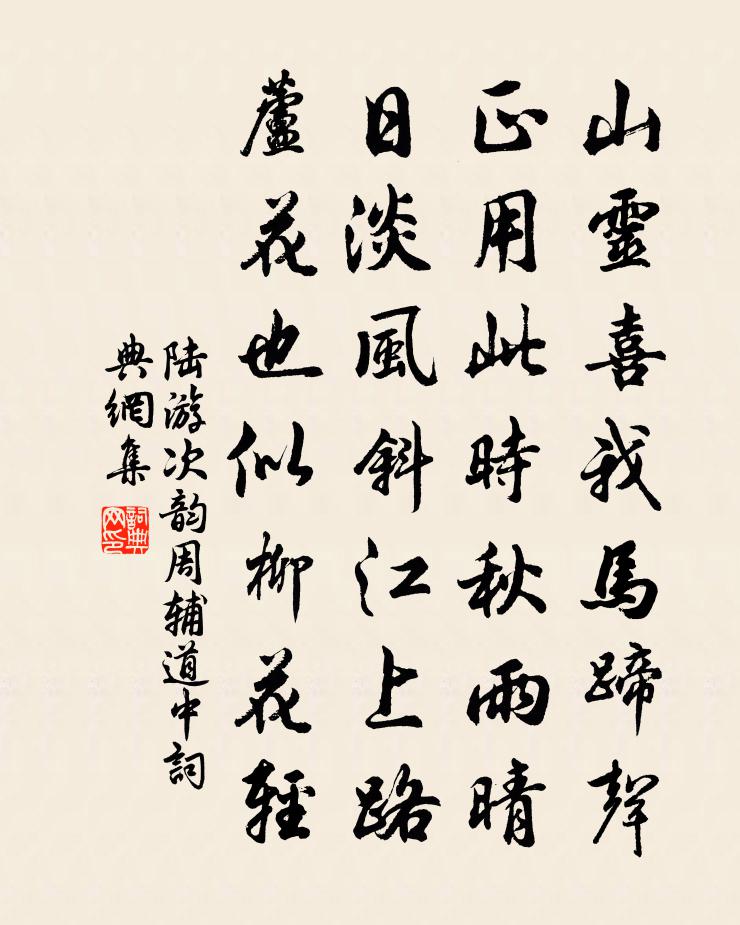 山靈喜我馬蹄聲
正用此時秋雨晴
日淡風斜江上路
蘆花也似柳花輕
陆游次韵周辅道中詞
典網集
詞典
网印